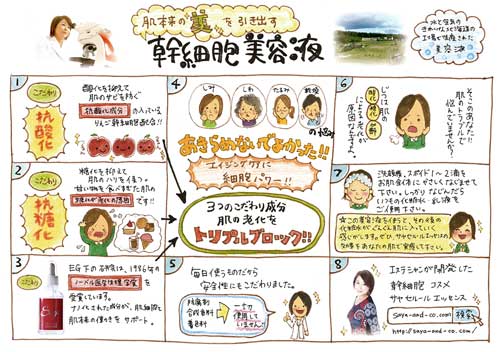 肌本来の 力 を引き出す
幹細胞美容液
水と空気の
きれいな
工場で生産された
美容液
1
こだわり
抗酸化
酸化を抑えて
肌のサビを防ぐ
抗酸化成分の入っている
りんご幹細胞配合!!
2
こだわり
抗糖化
糖化を抑えて
肌のハリを保つ。
甘い物を食べすぎた肌の
糖化が老化の原因です
3
こだわり
EGFの
ノーベル医学生理学賞を
受賞しています。
ナノ化された成分が、肌細胞と
肌本来の働きをサポート。
4
しみ
しわ
たるみ
乾燥
の悩み
あきらめないでよかった!!
エイジングケアに
細胞パワー!!
3つのこだわり成分
肌の老化を
トリプルブロック!!
5
毎日使うものだから
安全性にもこだわりました。
防腐剤
合成香料
着色料
一切
使用して
いません!!
6
そこのあなた!
肌のトラブルで
悩んでいませんか?
じつは肌の
による老化が
原因なんですよ。
7
洗顔後、スポイト1〜2滴を
お肌全体にやさしくなじませて
下さい。しっかりなじんだら
いつもの化粧水・乳液を
ご使用下さい。
☆この美容液を使うと、その後の
化粧水がぐんぐん肌に入っていく
感じがします。ぜひ、サヤセルエッセンスの
効果をあなたの肌で実感して下さい。
8
エステシャンが開発した
幹細胞コスメ
サヤセルエッセンス
saya-and-co.com 検索
http://saya-and-co.com/